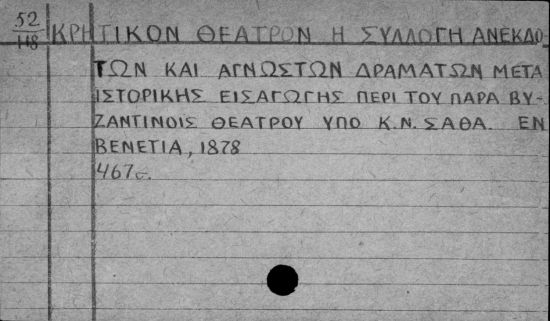 52
118
ΚΡΗΤΙΚΟΝ ΘΕΑΤΡΟΝ Η ΣΥΛΛΟΓΗ ΑΝΕΚΔΟ
ΤΩΝ ΚΑΙ ΑΓΝΩΣΤΩΝ ΔΡΑΜΑΤΩΝ ΜΕΤΑ
ΙΣΤΟΡΙΚΗΣ ΕΙΣΑΓΩΓΗΣ ΠΕΡΙ ΤΟΥ ΠΑΡΑ ΒΥ-
ΖΑΝΤΙΝΟΙΣ ΘΕΑΤΡΟΥ ΥΠΟ Κ.Ν. ΣΑΘΑ. ΕΝ
ΒΕΝΕΤΙΑ, 1878
467 с.